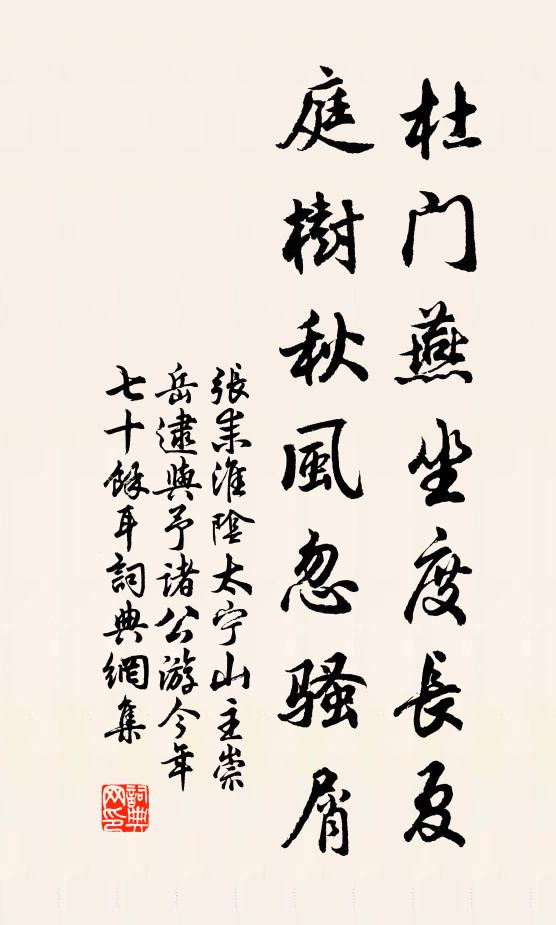 杜门燕坐度長夏
庭樹秋風忽騷屑
張耒淮陰太宁山主崇
岳逮與予諸公游今年
七十餘耳詞典網集
詞典网印